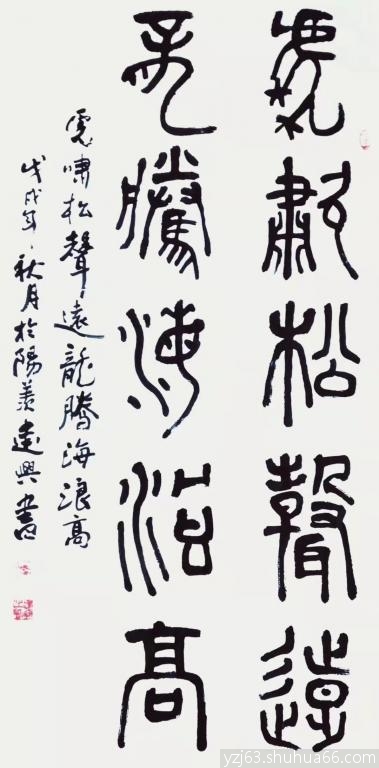 虎嘯松聲遠
龍騰海浪高
虎嘯松聲遠龍騰海浪高
戊戌年秋月於陽羨建興書
yzj63.shuhua66.com